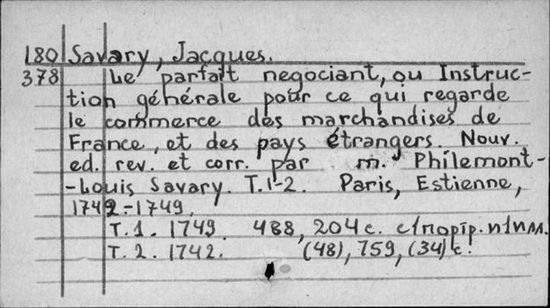 180 Savary, Jacques.
378 Le parfait negociant, ou Instruc-
tion générale pour ce qui regarde
le commerce des marchandises de
France, et des pays étrangers. Nouv.
ed. rev. et corr. par m. Philemont-
-Louis Savary. T.1-2. Paris, Estienne,
1742-1749.
T. 1. 1749. 488, 204 c.
T. 2. 1742. (48), 759, (34) c.